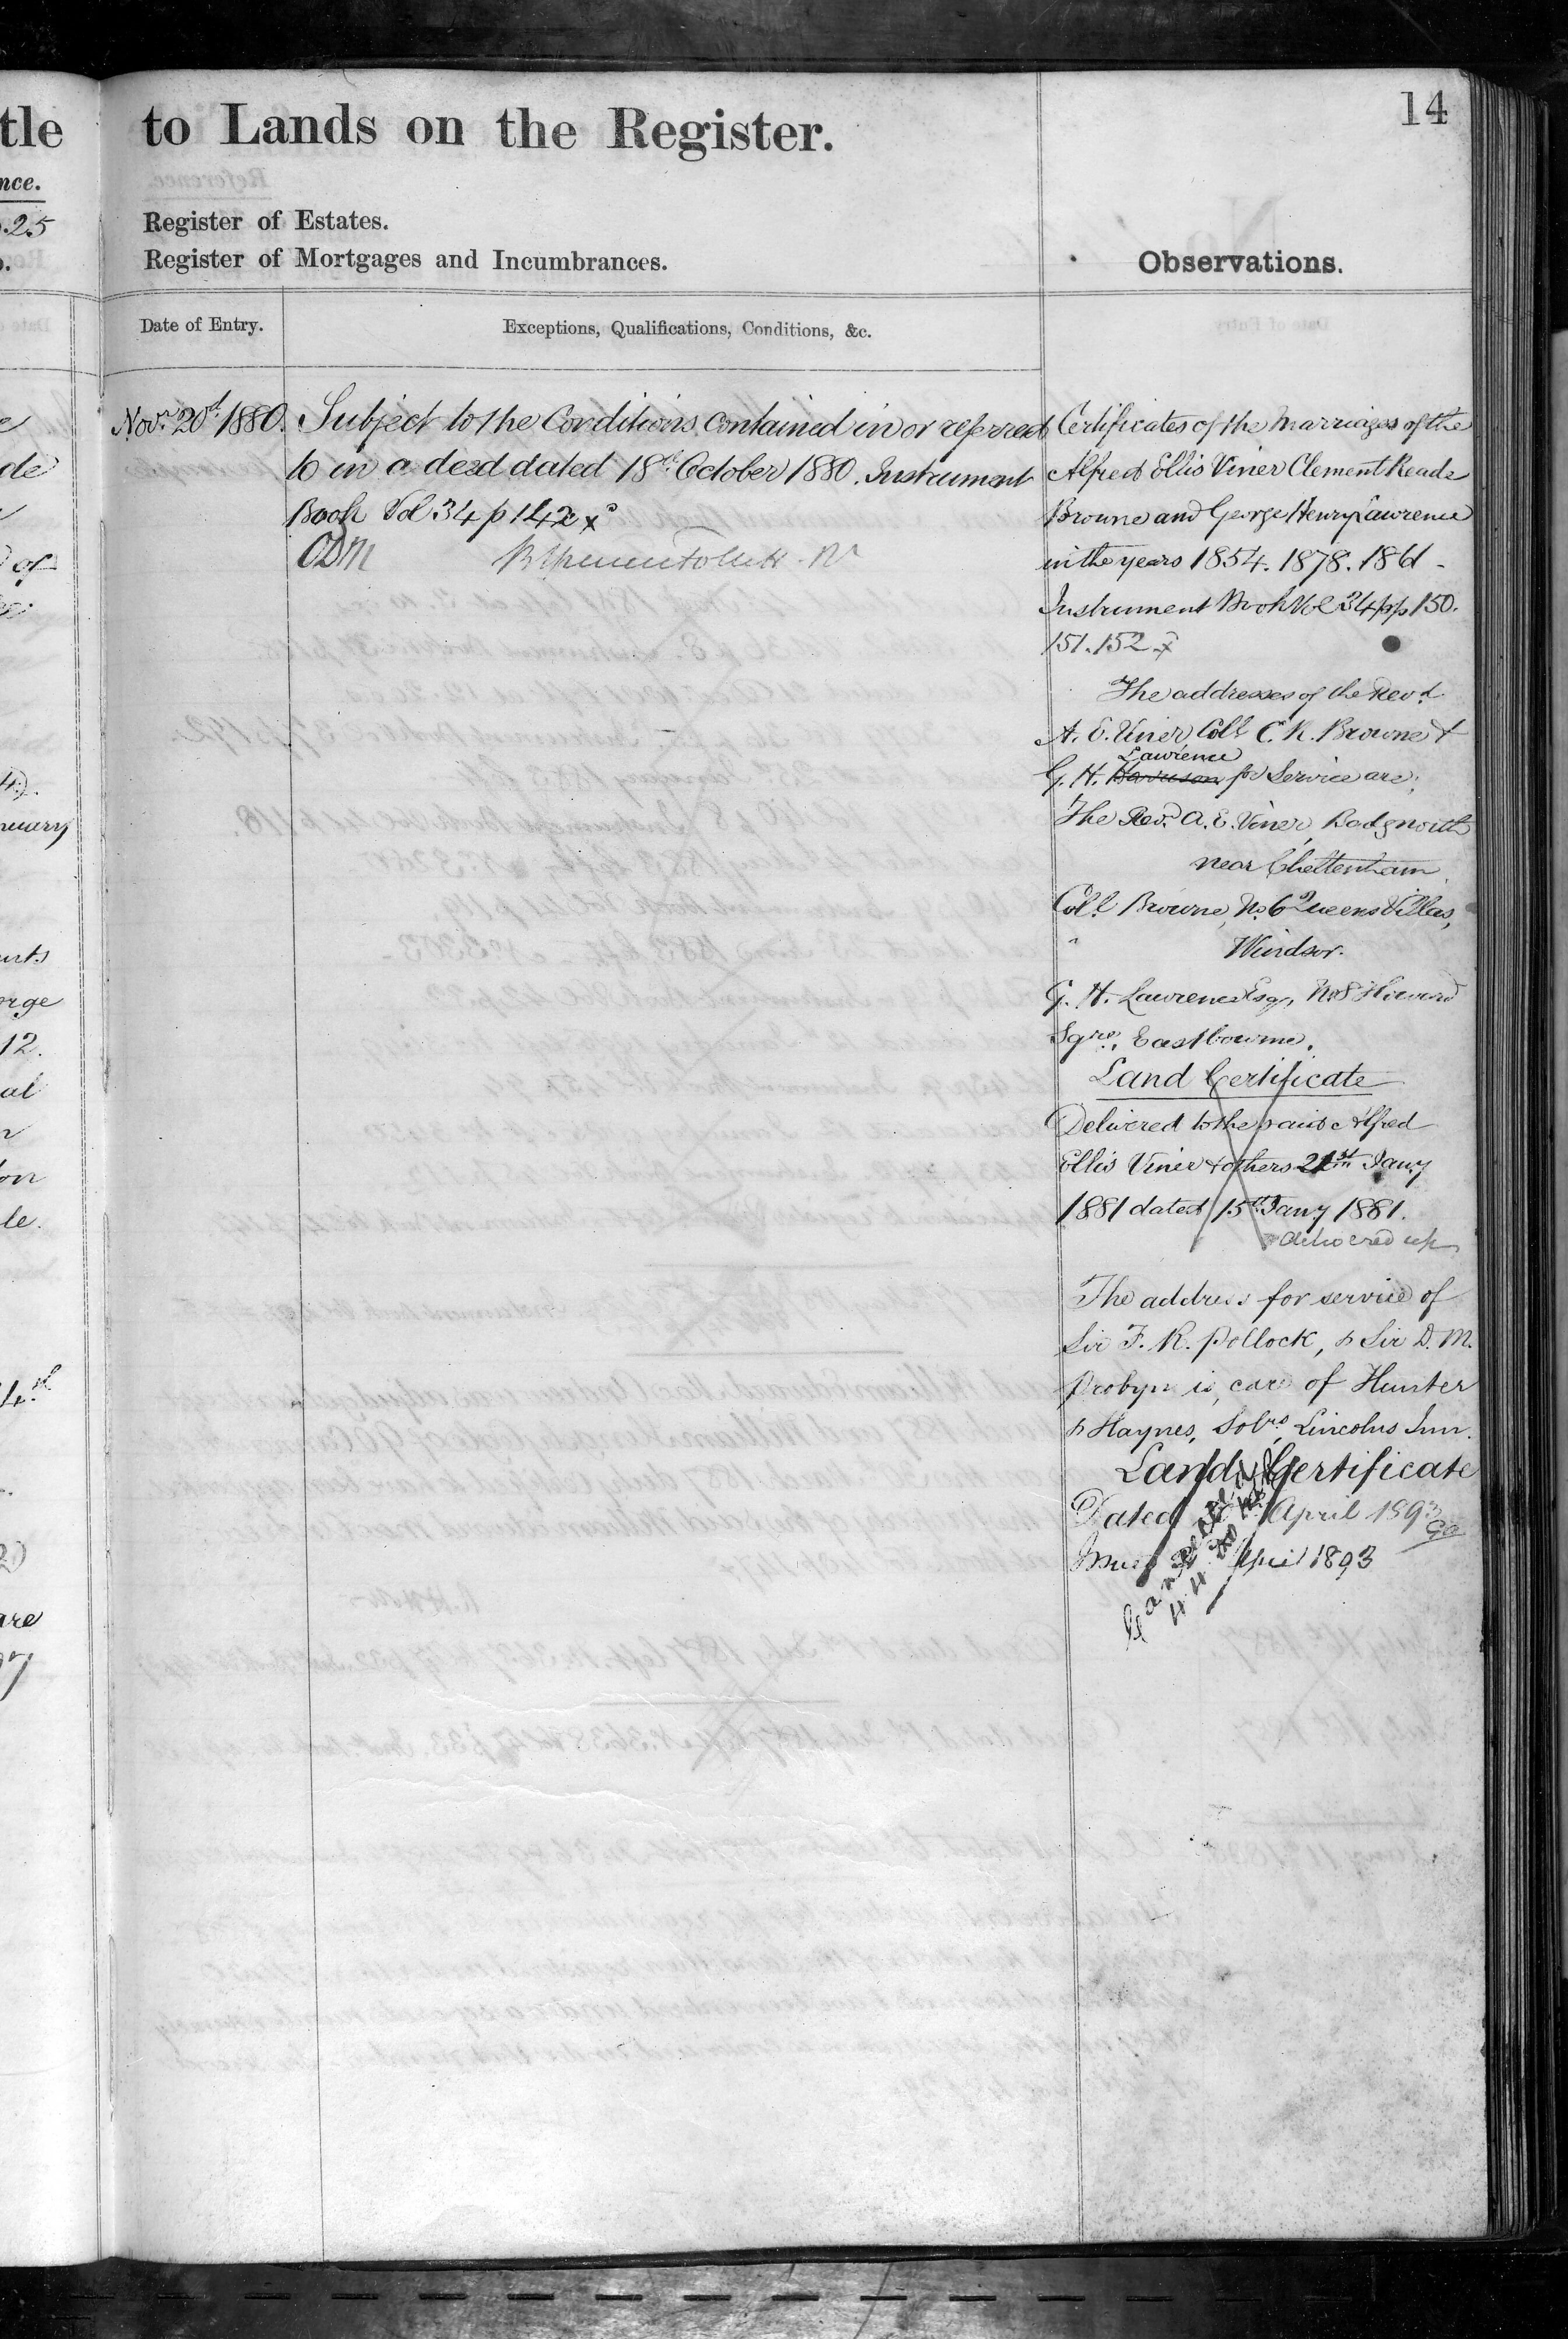 14
tle to Lands on the Register.
nce.
.25 Register of Estates.
Register of Mortgages and Incumbrances.
Observations.
Date of Entry. Exceptions, Qualifications, Conditions, &c.
Novr. 20th 1880. Subject to the Conditions contained in or referred
to in a deed dated 18th October 1880. Instrument
Book Vol 34 p 142
CDM
Certificates of the Marriages of the
Alfred Ellis Viner Clement Reade
Browne and George Henry Lawrence
in the years 1854. 1878. 1861 -
Instrument Book Vol 34 pp 150.
151. 152
The addresses of the Revd.
A. E. Viner Coll C. R. Browne &
Lawrence
G. H. for Service are;
The Revd. A. E. Viner, Badgworth
near Cheltenham
Coll. Browne, No. 6 Queens Villas,
" Windsor.
G. H. Lawrence Esqr, No 8 Howard
Sqre., Eastbourne.
Land Certificate
Delivered to the said Alfred
Ellis Viner & others 21st Jany
1881 dated 15th Jany 1881.
delivered up
The address for service of
Sir F. R. Pollock, & Sir D. M.
Probyn is, care of Hunter
& Haynes, Solrs, Lincolns Inn.
Land Certificate
Dated April 1893
April 1893
de
of
nuary
orge
12.
al
on
le.
4th
are